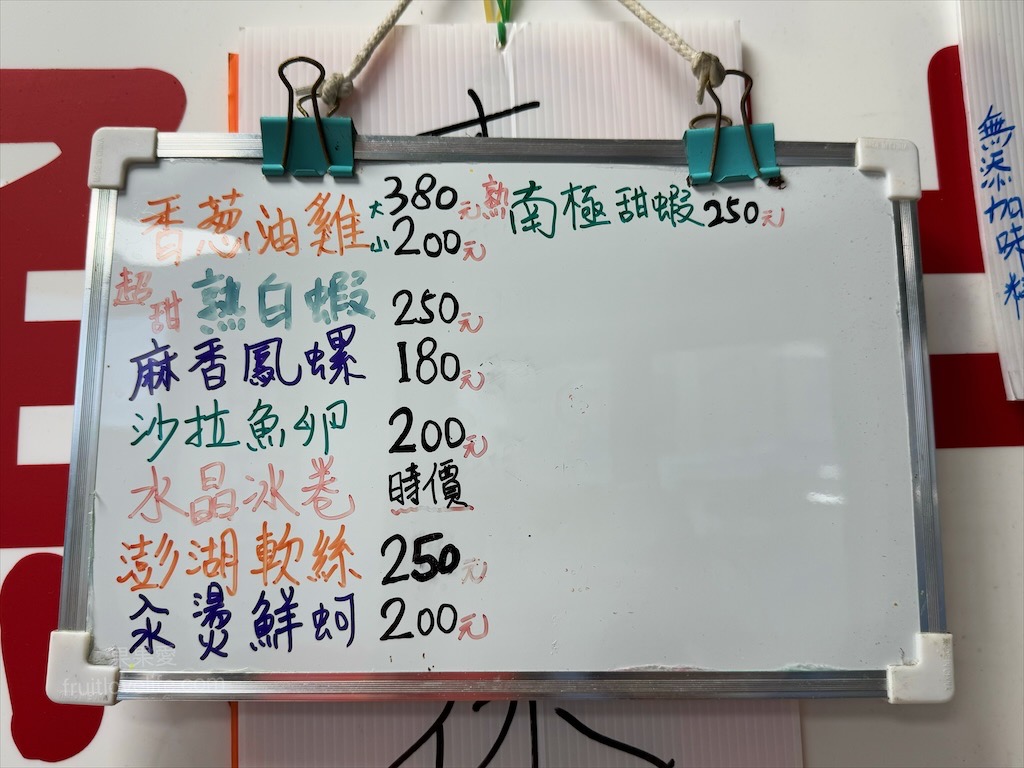 香蔥油雞 大380元
小200元
熟南極甜蝦250元
超甜 熟白蝦 250元
麻香鳳螺 180元
沙拉魚卵 200元
水晶冰卷 時價
澎湖軟絲 250元
汆燙鮮蚵 200元
無添加味精